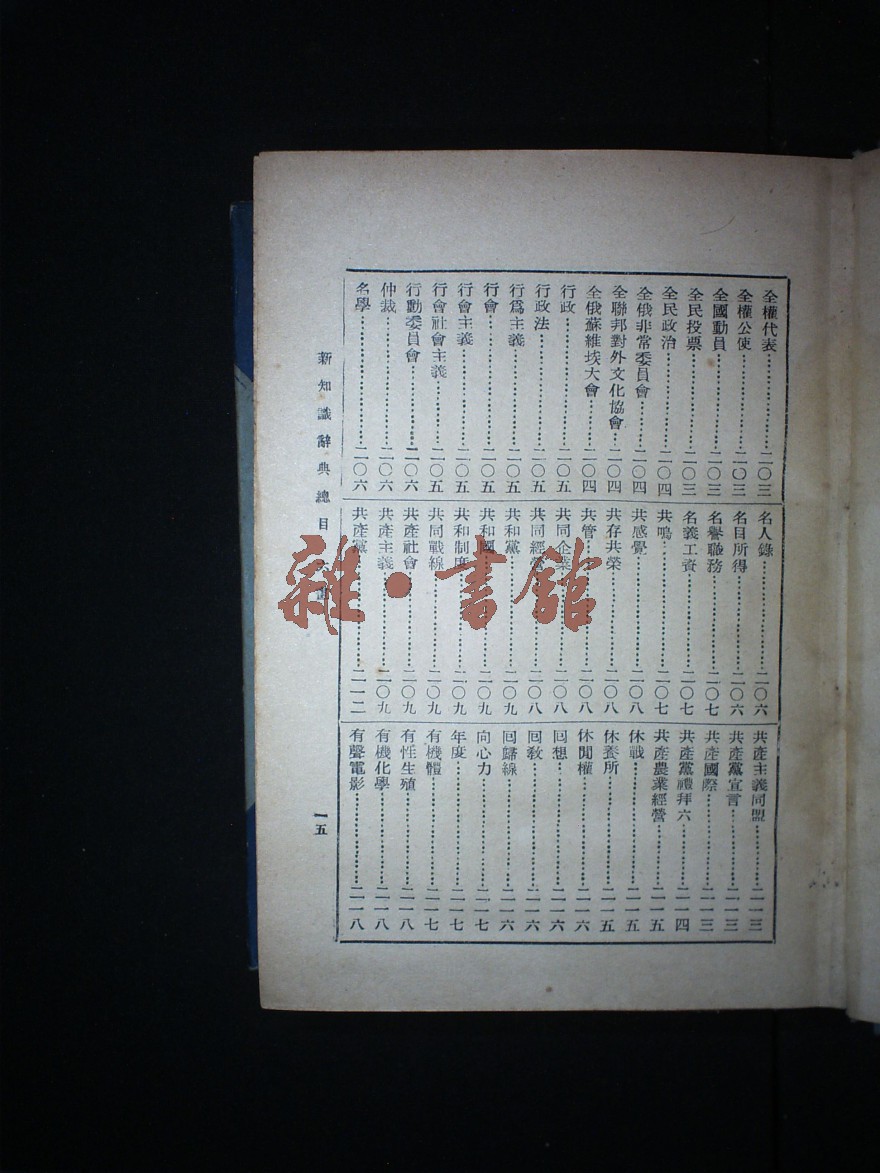 全權代表……二〇三
全權公使……二〇三
全國動員……二〇三
全民投票……二〇三
全民政治……二〇四
全俄非常委員會……二〇四
全聯邦對外文化協會……二〇四
全俄蘇維埃大會……二〇四
行政……二〇五
行政法……二〇五
行爲主義……二〇五
行會……二〇五
行會主義……二〇五
行會社會主義……二〇五
行動委員會……二〇六
仲裁……二〇六
名學……二〇六
名人錄……二〇六
名目所得……二〇六
名譽職務……二〇七
名義工資……二〇七
共鳴……二〇七
共感覺……二〇八
共存共榮……二〇八
共管……二〇八
共同企業……二〇八
共同經營……二〇八
共和黨……二〇九
共和國……二〇九
共和制度……二〇九
共同戰線……二〇九
共產社會……二〇九
共產主義……二〇九
共產黨……二一二
共產主義同盟……二一三
共產黨宣言……二一三
共產國際……二一三
共產黨禮拜六……二一四
共產農業經營……二一五
休戰……二一五
休養所……二一五
休閒權……二一六
回想……二一六
回教……二一六
回歸線……二一六
向心力……二一七
年度……二一七
有機體……二一七
有性生殖……二一八
有機化學……二一八
有聲電影……二一八
新知識辭典總目
一五
雜·書館